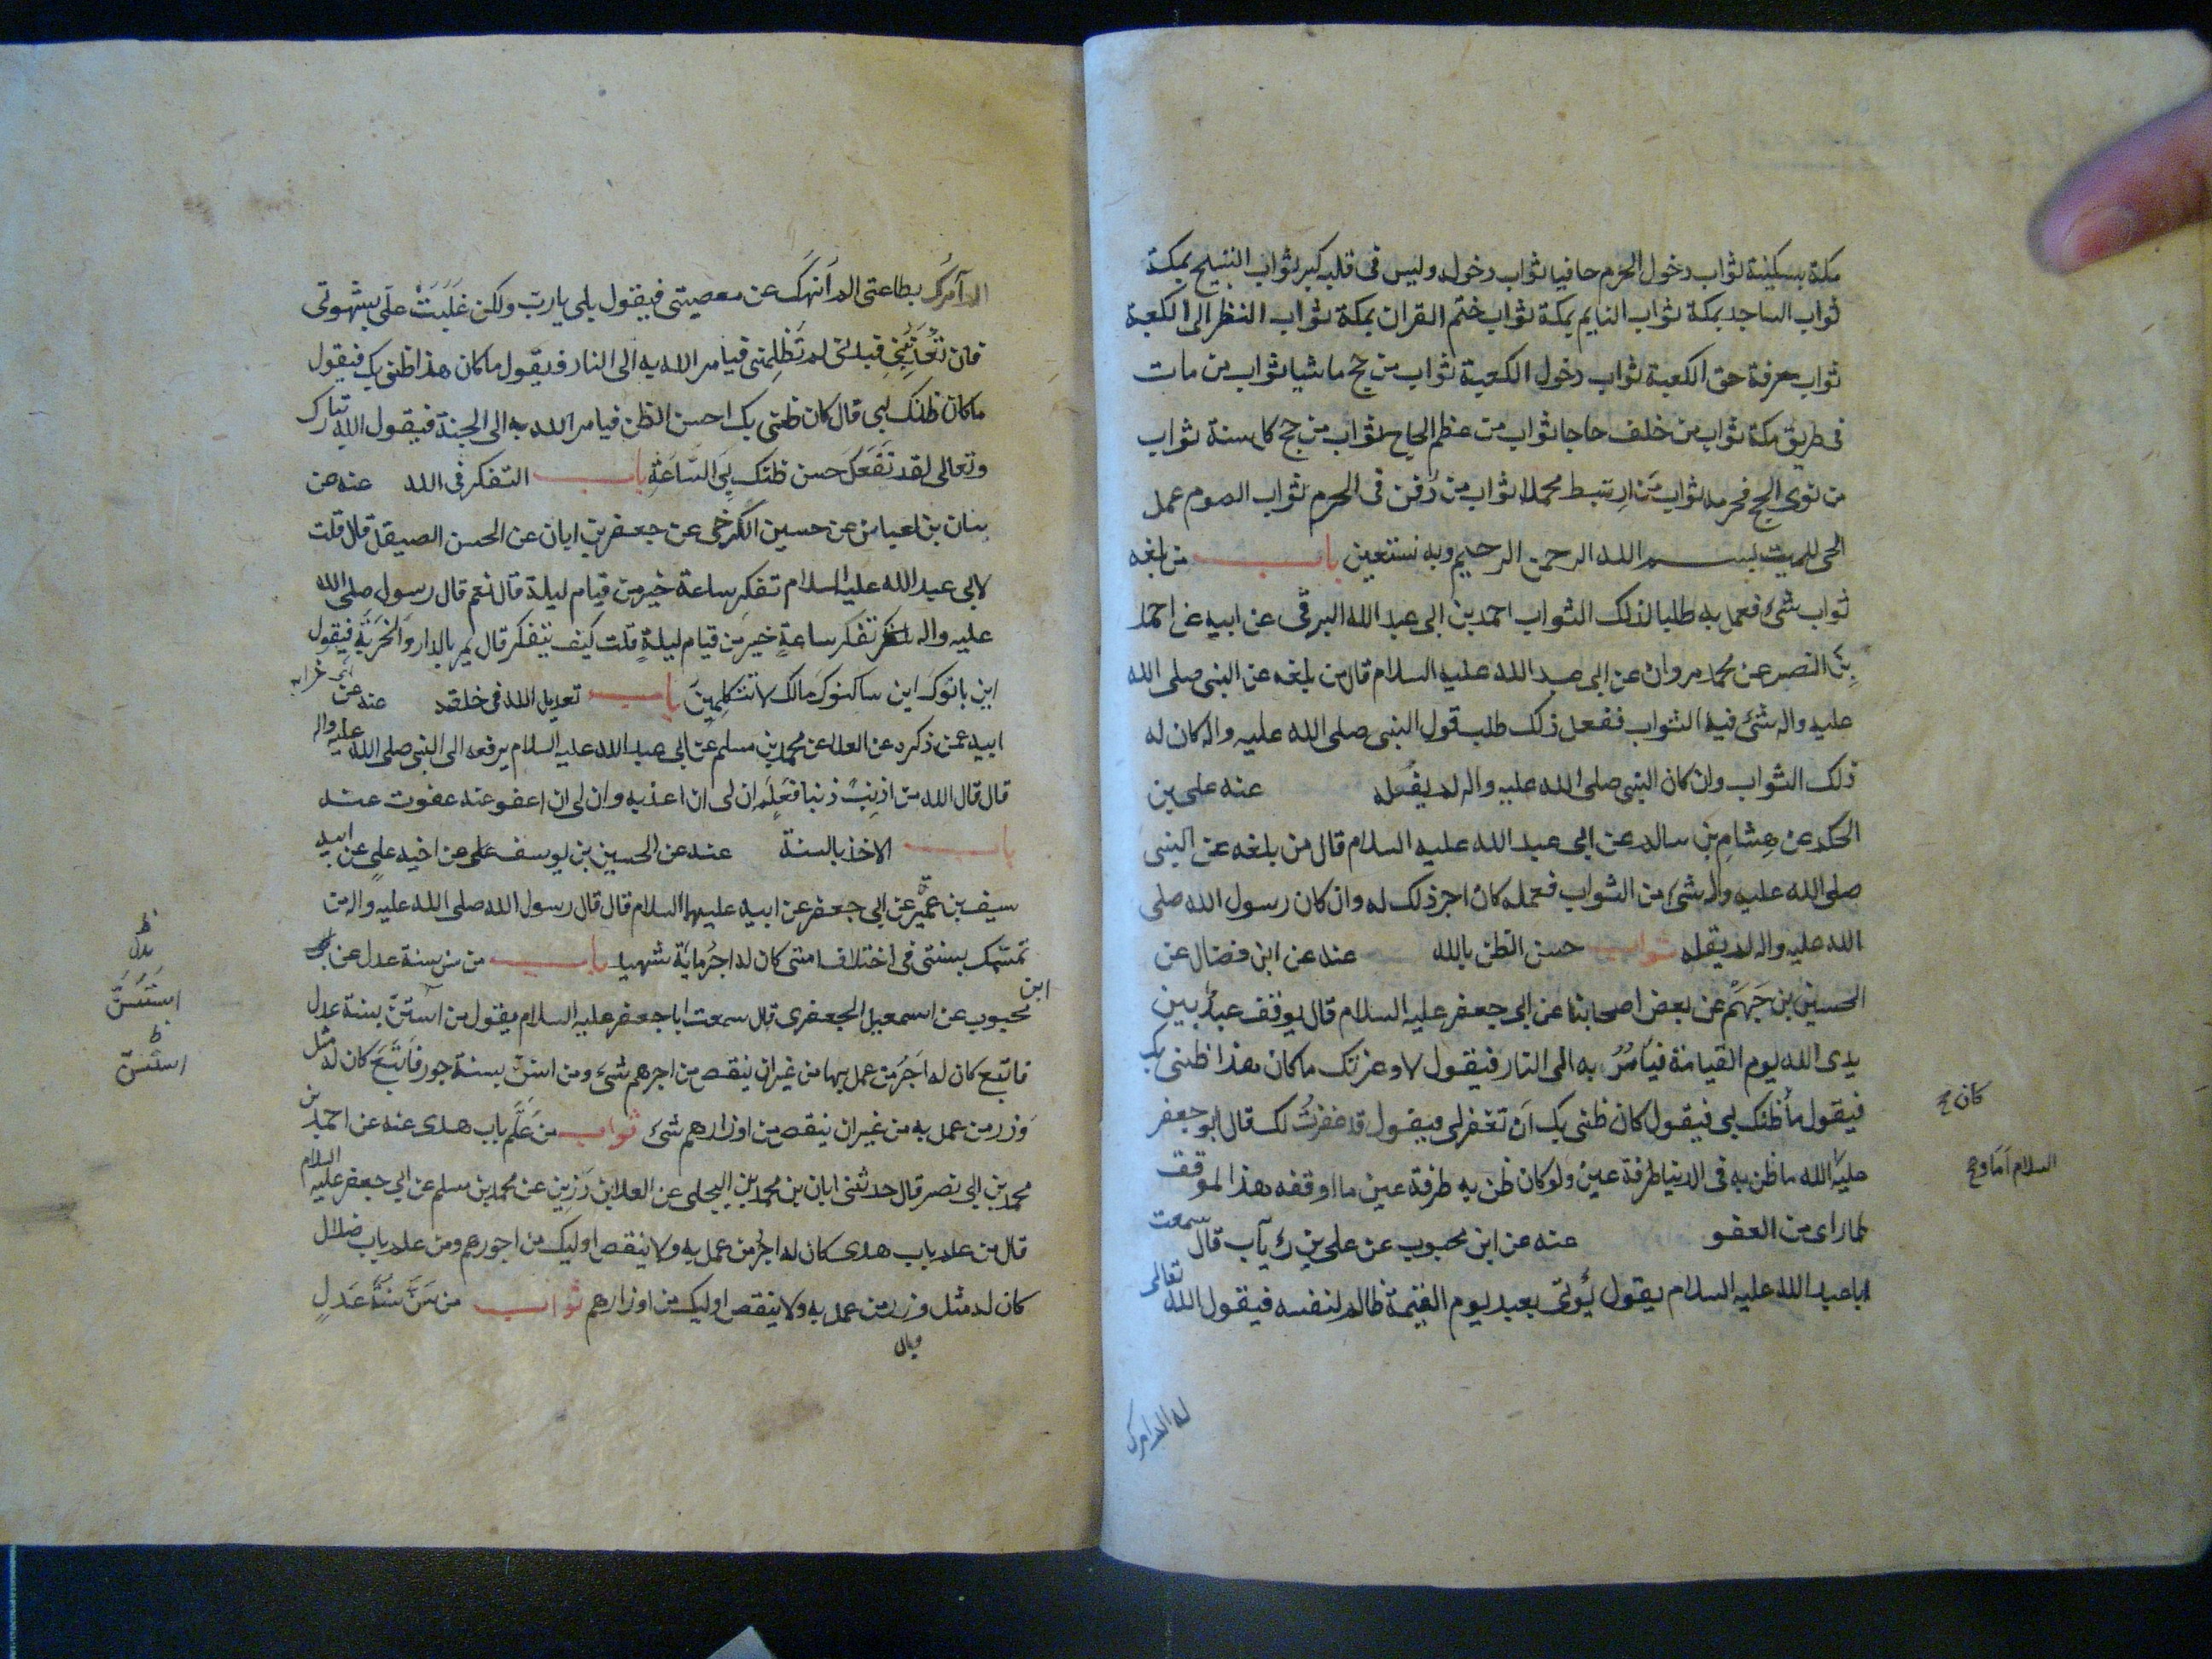 مكة بسكينة ثواب دخول الحرم حافيا ثواب دخوله وليس فى قلبه كبر ثواب التسبيح بمكة
ثواب الساجد بمكة ثواب النايم بمكة ثواب ختم القران بمكة ثواب النظر الى الكعبة
ثواب معرفة حق الكعبة ثواب دخول الكعبة ثواب من حج ماشيا ثواب من مات
فى طريق مكة ثواب من خلف حاجا ثواب من عظم الحاج ثواب من حج كل سنة ثواب
من نوى الحج فحرمه ثواب من ارتبط محملا ثواب من دفن فى الحرم ثواب الصوم عمل
الحى للميت بسم الله الرحمن الرحيم وبه نستعين باب من بلغه
ثواب شئ فعمل به طلبا لذلك الثواب احمد بن ابى عبد الله البرقى عن ابيه عن احمد
بن النضر عن محمد مروان عن ابى عبد الله عليه السلام قال من بلغه عن النبى صلى الله
عليه واله شئ فيه الثواب ففعل ذلك طلب قول النبى صلى الله عليه واله كان له
ذلك الثواب وان كان النبى صلى الله عليه واله لم يقله عنه على بن
الحكم عن هِشامِ بن سالم عن ابى عبد الله عليه السلام قال من بلغه عن النبى
صلى الله عليه واله شئ من الثواب فعمله كان اجر ذلك له وان كان رسول الله صلى
الله عليه واله لم يقله ثواب حسن الظن بالله عنه عن ابن فضال عن
الحسين بن جَهَم عن بعض اصحابنا عن ابى جعفر عليه السلام قال يوقف عبد بين
يدى الله يوم القيامة فيأمُرُ به الى النار فيقول لا وعزتك ما كان هذا ظنى بك
فيقول ما ظنك بى فيقول كان ظنى بك أن تغفر لى فيقول قد غفرتُ لك قال ابو جعفر
كان خ
عليه الله ما ظن به فى الدنيا طرفة عين ولو كان ظن به طرفة عين ما اوقفه هذا الموقف
السلام اما و خ
لما راى من العفو عنه عن ابن محبوب عن على بن رئاب قال سمعت
ابا عبد الله عليه السلام يقول يُؤتى بعبد يوم القيمة ظالم لنفسه فيقول الله تعالى
له الم امرك
الم آمرك بطاعتى الم أنهك عن معصيتى فيقول بلى يا رب ولكن غلبَتْ علىّ شهوتى
فان تعذبنى فبذنبى لم تَظلِمنى فيامر الله به الى النار فيقول ما كان هذا ظنى بك فيقول
ما كان ظنك بى قال كان ظنى بك احسن الظن فيامر الله به الى الجنة فيقول الله تبارك
وتعالى لقد نَفَعَكَ حسن ظنك بى الساعَةِ باب التفكر فى الله عنه عن
بنان بن العباس عن حسين الكرخى عن جعفر بن ابان عن الحسن الصيقل قال قلت
لابى عبد الله عليه السلام تفكر ساعة خير من قيام ليلة قال نعم قال رسول صلى الله
عليه واله تفكر ساعةٍ خير من قيام ليلةٍ قلت كيف يتفكر قال يمر بالدار والخَرِبَةِ فيقول
اى خرابه
اين بانوكَ اين ساكنوكَ مالك لا تتكلمينَ باب تعديل الله فى خلقه عنه عن
ابيه عمن ذكره عن العلا عن محمد بن مسلم عن ابى عبد الله عليه السلام يرفعه الى النبى صلى الله عليه واله
قال قال الله من اذنبَ ذنبا فعَلِم ان لى ان اعذبه وان لى ان اعفو عنه عفوت عنه
باب الاخذ بالسنة عنه عن الحسين بن يوسف على عن اخيه على عن ابيه
سيف بن عميرة عن ابى جعفر عن ابيه عليهما السلام قال قال رسول الله صلى الله عليه واله من
تمسّك بسنتى فى اختلاف امتى كان له اجرُ ماية شهيد باب من سن سنة عدل عن
ابن
محبوب عن اسمعيل الجعفرى قال سمعت ابا جعفر عليه السلام يقول من استنّ بسنة عدل
ظ
بدل
استسنّ
ظ
استسنّ
فاتبع كان له اَجرُ من عمل بها من غير ان ينقص من اجرهم شئ ومن استنّ بسنة جور فاتّبَعَ كان له مثل
وزر من عمل به من غير ان ينقص من اوزارهم شئ ثواب من عَلَّم باب هدى عنه عن احمد بن
محمد بن ابى نصر قال حدثنى ابان بن محمد بن البجلى عن العلا بن رَزِين عن محمد بن مسلم عن ابى جعفر عليه السلام
قال من علم باب هدى كان له اجرُ من عمل به ولا ينقص اوليك من اجورهم ومن علم باب ضلال
كان له مثل وزر من عمل به ولا ينقص اوليك من اوزارهم ثواب من سَنّ سنةَ عَدلٍ
وبال